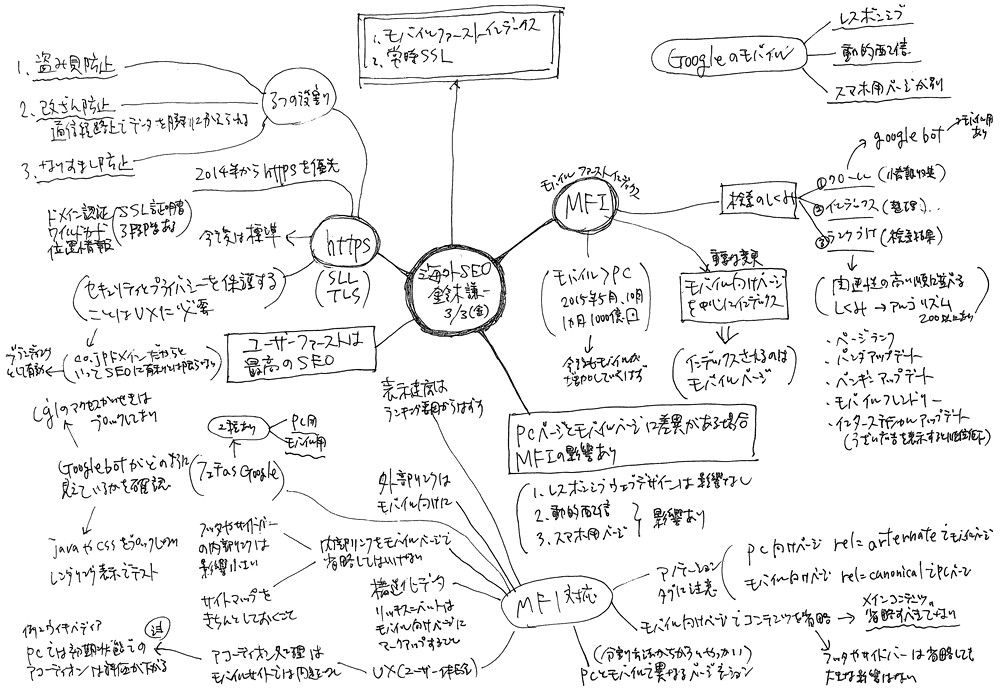 1. モバイルファーストインデックス
2. 常時SSL
Googleのモバイル
レスポンシブ
動的配信
スマホ用ページが別
3つの役割
1. 盗み見防止
2. 改ざん防止
通信経路上でデータを勝手にかえられる
3. なりすまし防止
2014年からhttpsを優先
ドメイン認証
ワイルドカード
位置情報
SSL証明書
3段階ある
今後は標準
https
(SLL
TLS)
セキュリティとプライバシーを保護する
ことはUXに必要
co.jpドメインだからと
いってSEOに有利とは限らない
ブランディング
として有効
海外SEO
鈴木謙一
3/3(金)
ユーザーファーストは
最高のSEO
モバイルファーストインデックス
MFI
検索のしくみ
①クロール(情報収集)
googlebot
モバイル用
あり
②インデックス(整理)..
③ランクづけ(検索結果)
関連性の高い順に並べる
しくみ→アルゴリズム
200以上あり
・ページランク
・パンダアップデート
・ペンギンアップデート
・モバイルフレンドリー
・インタースティシャルアップデート
(モバイル>PC
2015年5月、10月
1カ月1000億回)
今後もモバイルが
増加していくはず
重要な変更
モバイル向けページ
を中心にインデックス
(インデックスされるのは
モバイルページ)
PCページとモバイルページに差異がある場合
MFIの影響あり
1. レスポンシブウェブデザインは影響なし
2. 動的配信
3. スマホ用ページ
影響あり
表示速度は
ランキング要因からはずす
cgiのアクセスかいせきは
ブロックしてよい
Googlebotがどのように
見えているかを確認
javaやcssをブロックしない
レンダリング表示でテスト
2種あり
PC用
モバイル用
(フェチ as Google)
外部リンクは
モバイル向けに
内部リンクをモバイルページで
省略してはいけない
フッタやサイドバー
の内部リンクは
影響小さい
サイトマップを
きちんとしておくこと
構造化データ
リッチスニペットは
モバイル向けページに
マークアップすること
UX(ユーザー体験)
アコーディオン処理は
モバイルサイトでは問題なし
逆
例:ウィキペディア
PCでは初期状態での
アコーディオンは評価が下がる
MFI対応
アノテーション
タグに注意
PC向けページ rel=arternateでモバイルページ
モバイル向けページ rel=canonicalでPCページ
モバイル向けページでコンテンツを省略
メインコンテンツは
省略すべきでない
フッタやサイドバーは省略しても
大きな影響はない
PCとモバイルで異なるページネーション